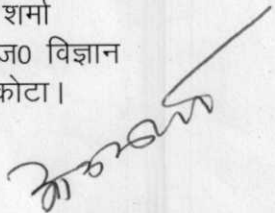 शर्मा
ज0 विज्ञान
कोटा।